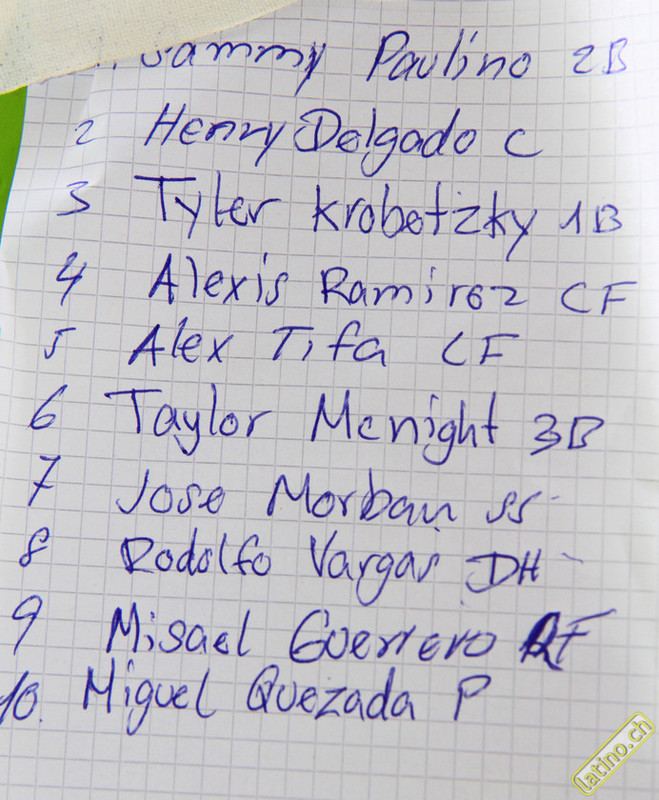 Sammy Paulino 2B
2 Henry Delgado C
3 Tyler Krobetzky 1B
4 Alexis Ramirez CF
5 Alex Tifa LF
6 Taylor Mcnight 3B
7 Jose Morban SS
8 Rodolfo Vargas DH
9 Misael Guerrero RF
10. Miguel Quezada P
latino.ch